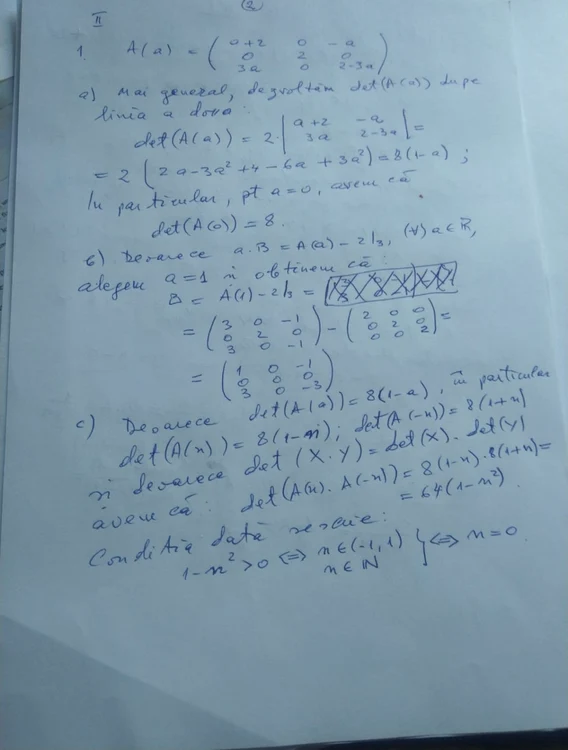 (2)
II
1. A(a) = ( a+2 0 -a
0 2 0
3a 0 2-3a )
a) Mai general, dezvoltăm det(A(a)) după
linia a doua:
det(A(a)) = 2· | a+2 -a
3a 2-3a | =
= 2 (2a-3a²+4-6a+3a²) = 8(1-a);
În particular, pt a=0, avem că
det(A(0)) = 8.
b) Deoarece a·B = A(a) - 2I₃, (∀) a∈ℝ,
alegem a=1 și obținem că:
B = A(1) - 2I₃ =
= ( 3 0 -1
0 2 0
3 0 -1 ) - ( 2 0 0
0 2 0
0 0 2 ) =
= ( 1 0 -1
0 0 0
3 0 -3 )
c) Deoarece det(A(a)) = 8(1-a), în particular
det(A(n)) = 8(1-n); det(A(-n)) = 8(1+n)
și deoarece det(X·Y) = det(X)·det(Y)
avem că: det(A(n)·A(-n)) = 8(1-n)·8(1+n) =
= 64(1-n²).
Condiția dată rescrie:
1-n² > 0 ⇔ n∈(-1,1)
n∈ℕ } ⇔ n=0.